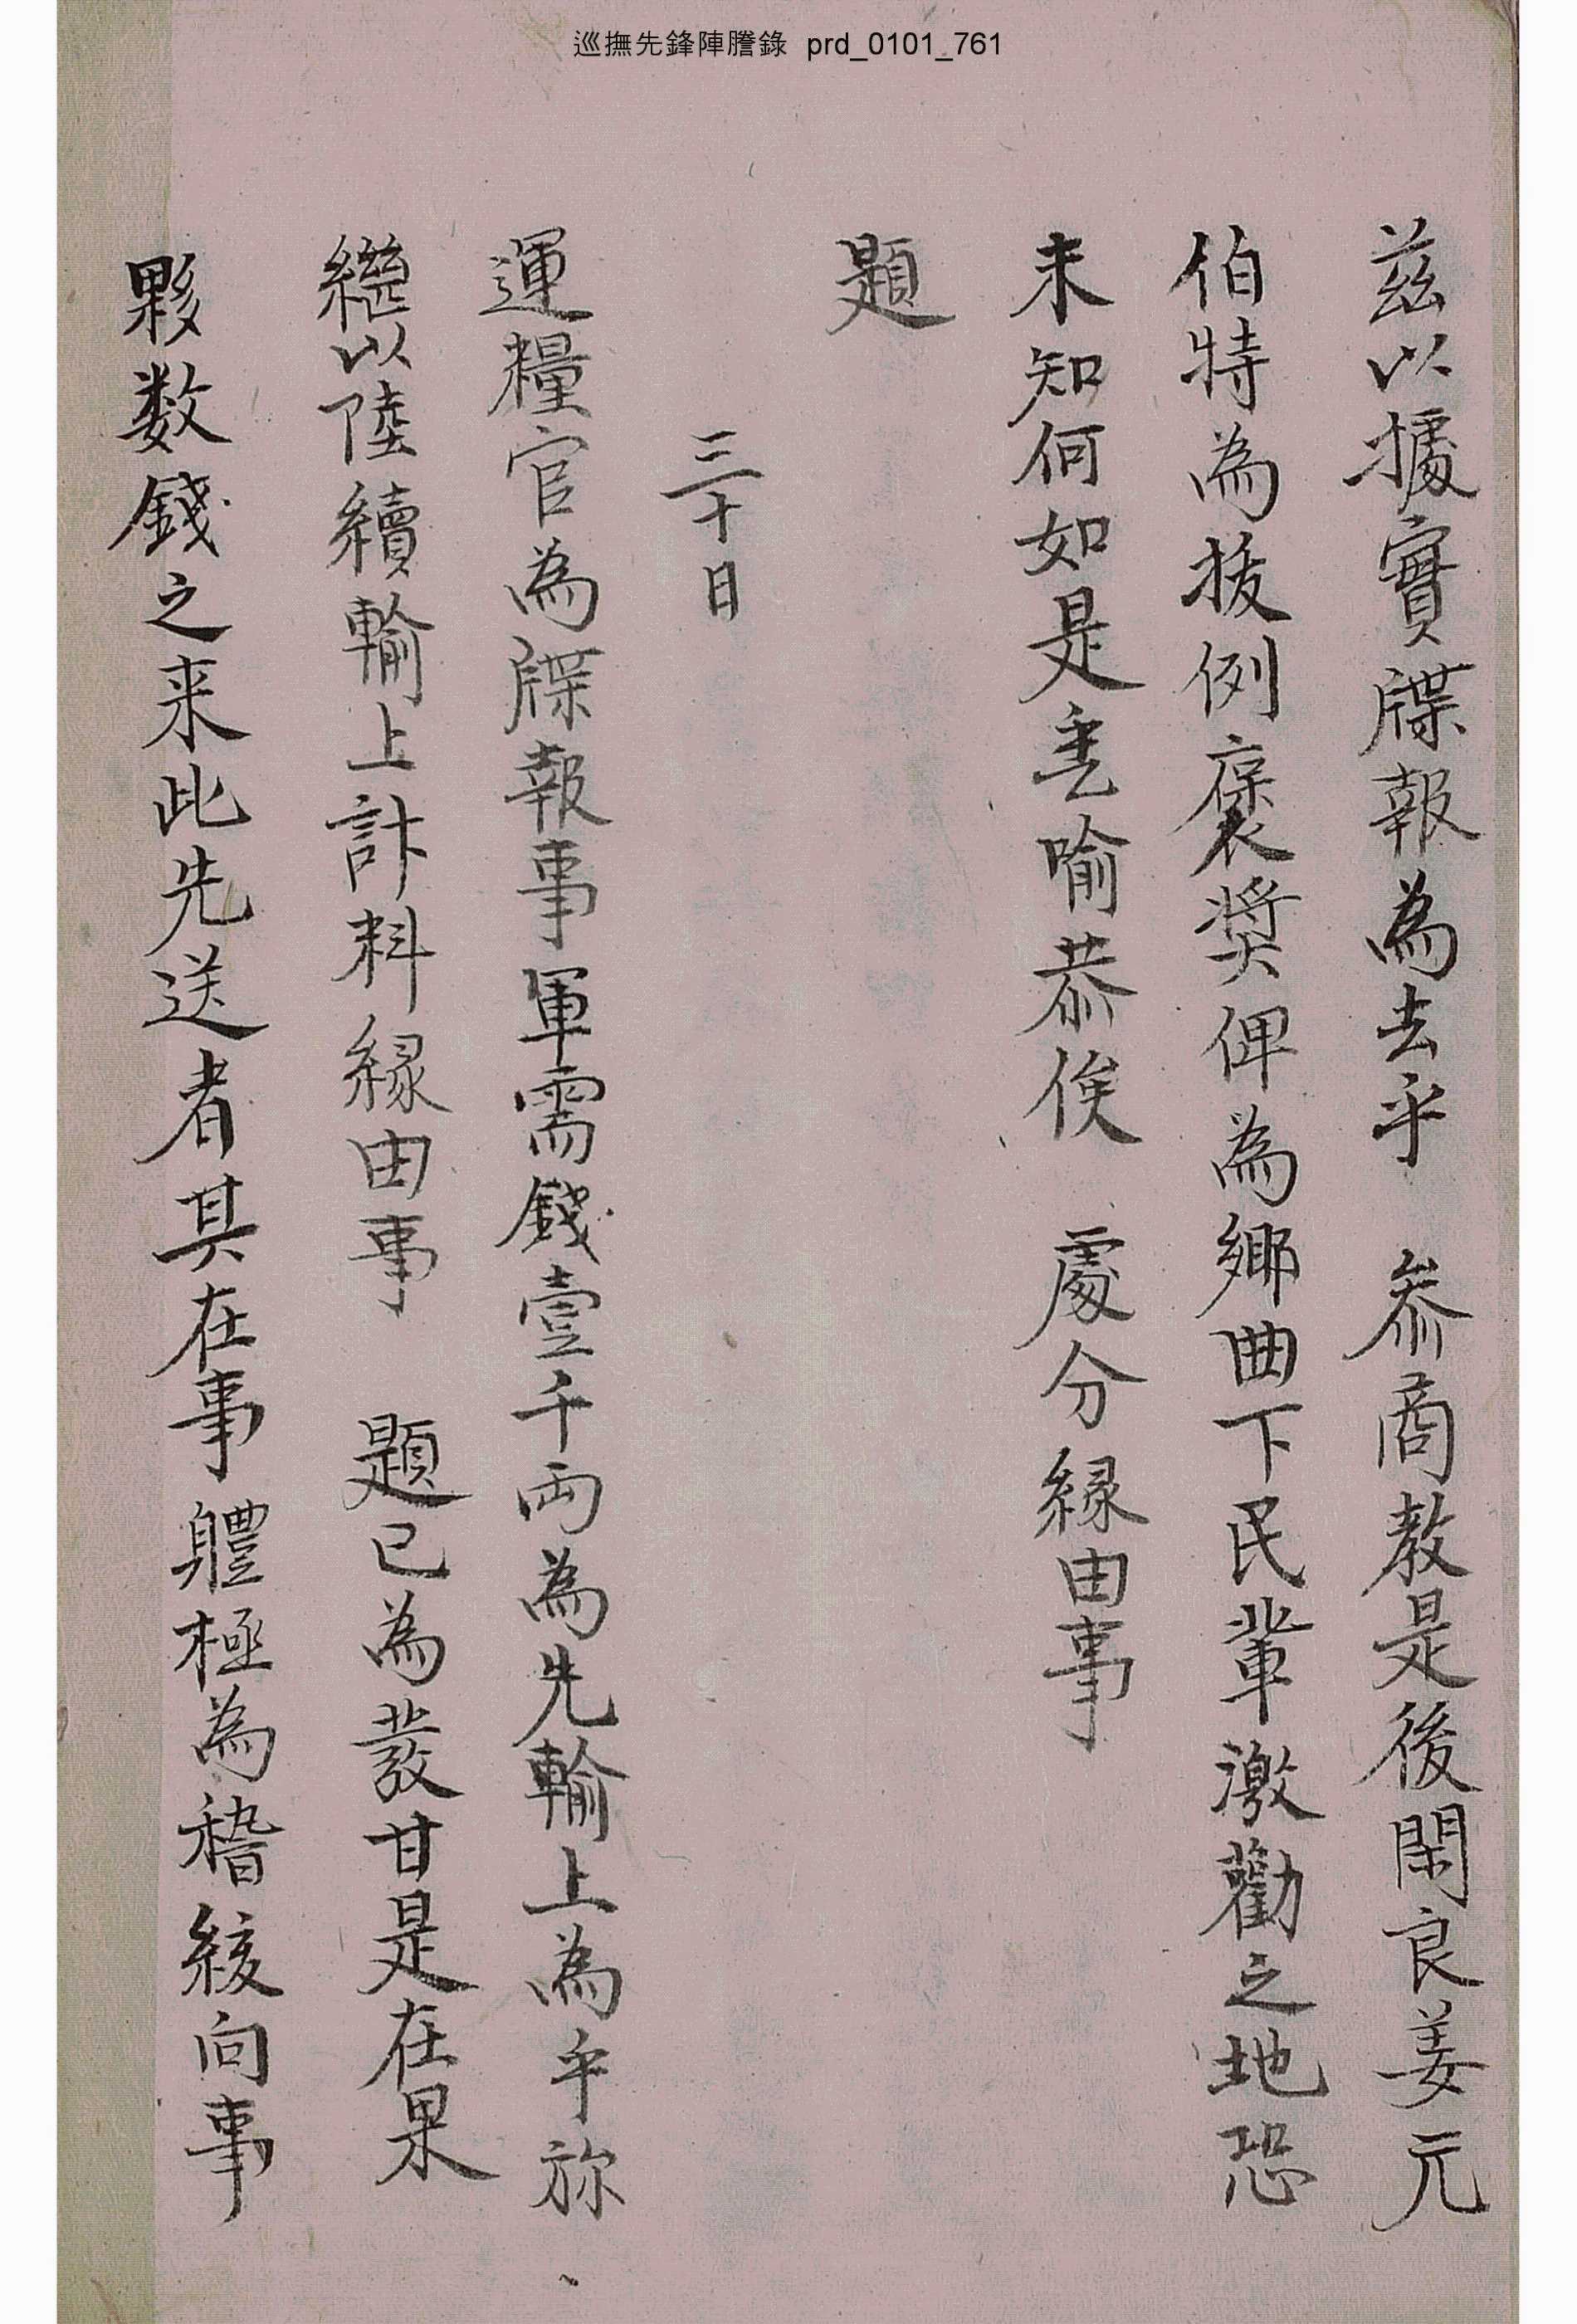 巡撫先鋒陣謄錄 prd_0101_761
茲以據實牒報為去乎 叅商教是後閑良姜元
伯特為拔例褒奬俾為鄉曲下民輩激勸之地恐
未知何如是乎喩恭俟 處分緣由事
題
三十日
運糧官為牒報事軍需錢壹千両為先輸上為乎旀
繼以陸續輸上計料緣由事 題已為發甘是在果
夥数錢之来此先送者其在事軆極為稽緩向事